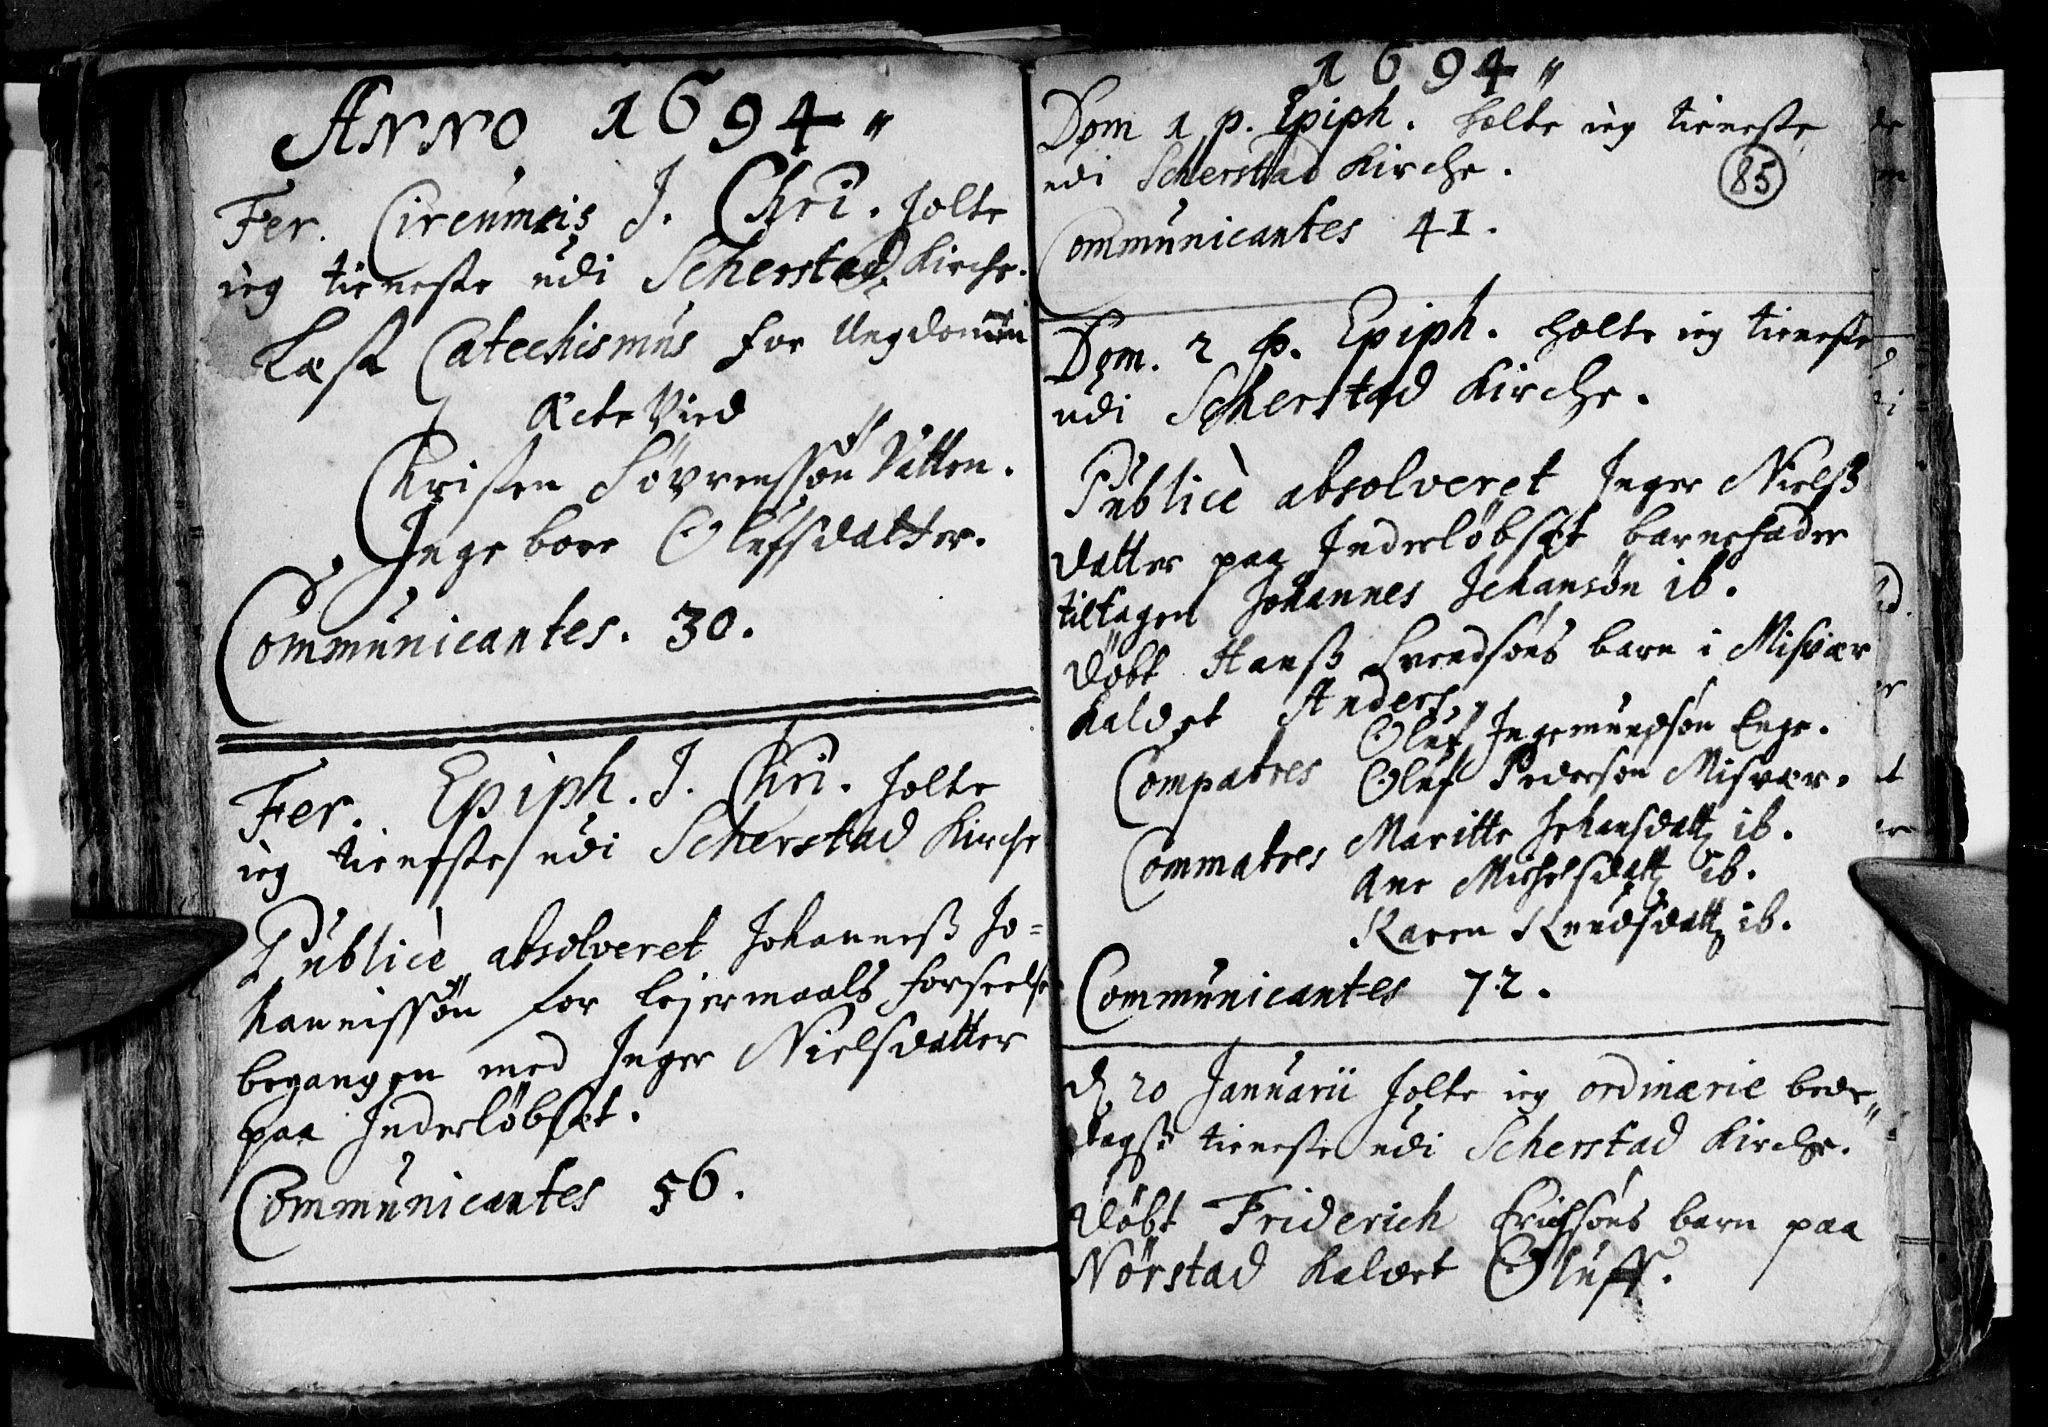 Anno 1694 "
Fer. Circumcis J. Chri. holte
ieg tieneste udi Scherstad Kirche.
Læst Catechismus for Ungdomen
Ecte Vied
Christen Søvrenssøn Vatten.
Ingebore Olufsdatter.
Communicantes. 30.
Fer. Epiph. J. Chri. holte
ieg tieneste udi Scherstad Kirche
Publicè absolveret Johanneß Jo-
hannissøn for lejermaals forseelse
begangen med Inger Nielsdatter
paa Inderløbset.
Communicantes 56.
1694 "
Dom 1 p. Epiph. holte ieg tieneste
udi Scherstad Kirche.
85
Communicantes 41.
Dom. 2 p. Epiph. holte ieg tieneste
udi Scherstad Kirche.
Publicè absolveret Inger Nielß
datter paa Inderløbset barnefader
tiltagen Johannes Johansøn ib.
Døbt Hanß Svendsøns barn i Misvær
kaldet Anders,
Oluf Ingemundsøn Enge.
Compatres Oluf Pedersøn Misvær.
Commatres Maritte Johansdatt ib.
Ane Michelsdatt ib.
Karen Knudsdatt ib.
Communicantes 72.
d. 20 Januarii holte ieg ordinærie bede"
dagß tieneste udi Scherstad Kirche.
Døbt Friderich Erichsøns barn paa
Nørstad kaldet Oluff.